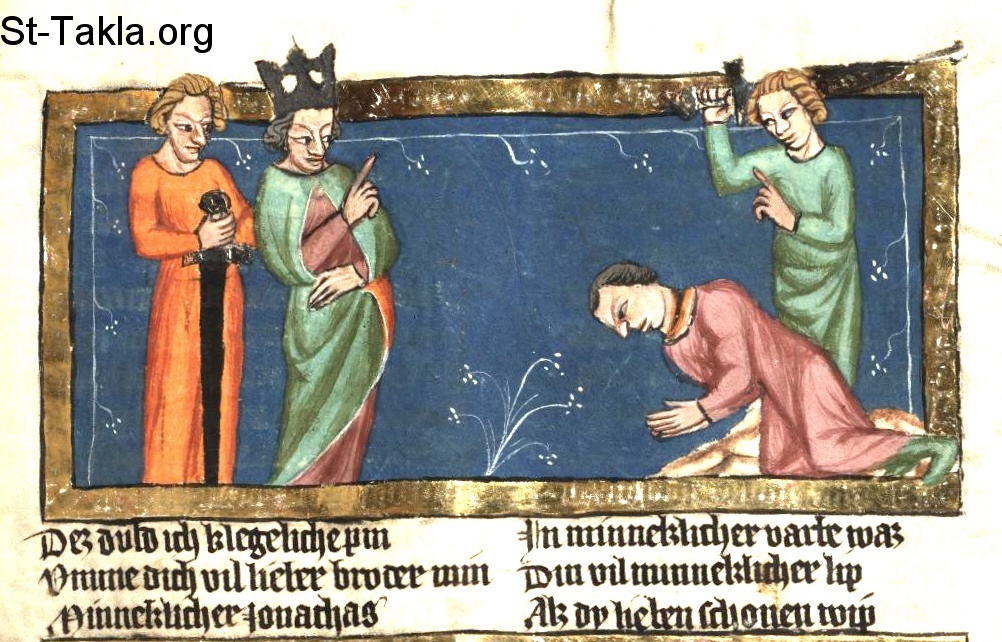 St-Takla.org
Dez duld ich klegeliche pin
Vmme dich vil lieber broder min
Minneklicher Jonathas
In minneklicher varbe waz
Din vil minneklicher lip
Als dv lieben schonen wip